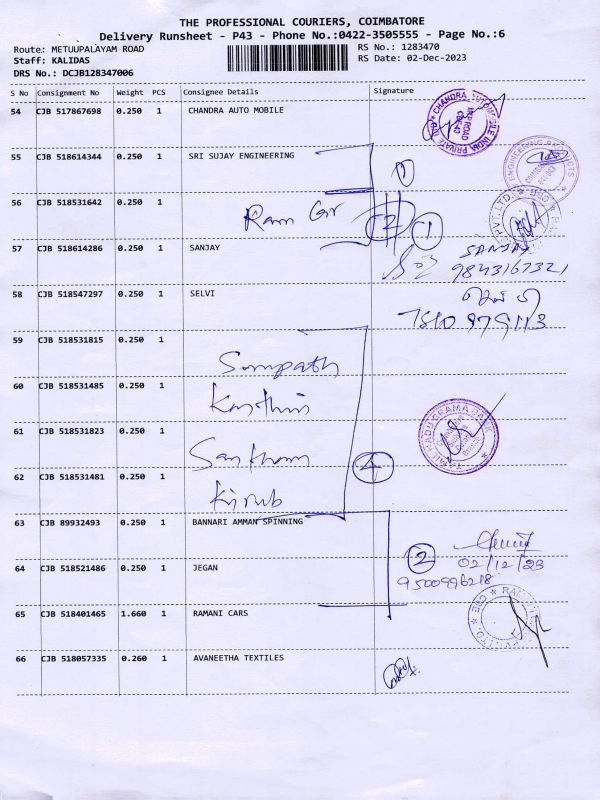 THE PROFESSIONAL COURIERS, COIMBATORE
Delivery Runsheet - P43 - Phone No.:0422-3505555 - Page No.:6
Route: METUUPALAYAM ROAD
RS No.: 1283470
Staff: KALIDAS
RS Date: 02-Dec-2023
DRS No.: DCJB128347006
S No Consignment No Weight PCS Consignee Details Signature
54 CJB 517867698 0.250 1 CHANDRA AUTO MOBILE
55 CJB 518614344 0.250 1 SRI SUJAY ENGINEERING
1
56 CJB 518531642 0.250 1
Ram
2 1
57 CJB 518614286 0.250 1 SANJAY
SANJAY
9843167321
58 CJB 518547297 0.250 1 SELVI
59 CJB 518531815 0.250 1
Sampath
60 CJB 518531485 0.250 1
Karthi
61 CJB 518531823 0.250 1
4
62 CJB 518531481 0.250 1
63 CJB 89932493 0.250 1 BANNARI AMMAN SPINNING
2
02/12/23
64 CJB 518521486 0.250 1 JEGAN
9500996218
65 CJB 518401465 1.660 1 RAMANI CARS
66 CJB 518057335 0.260 1 AVANEETHA TEXTILES